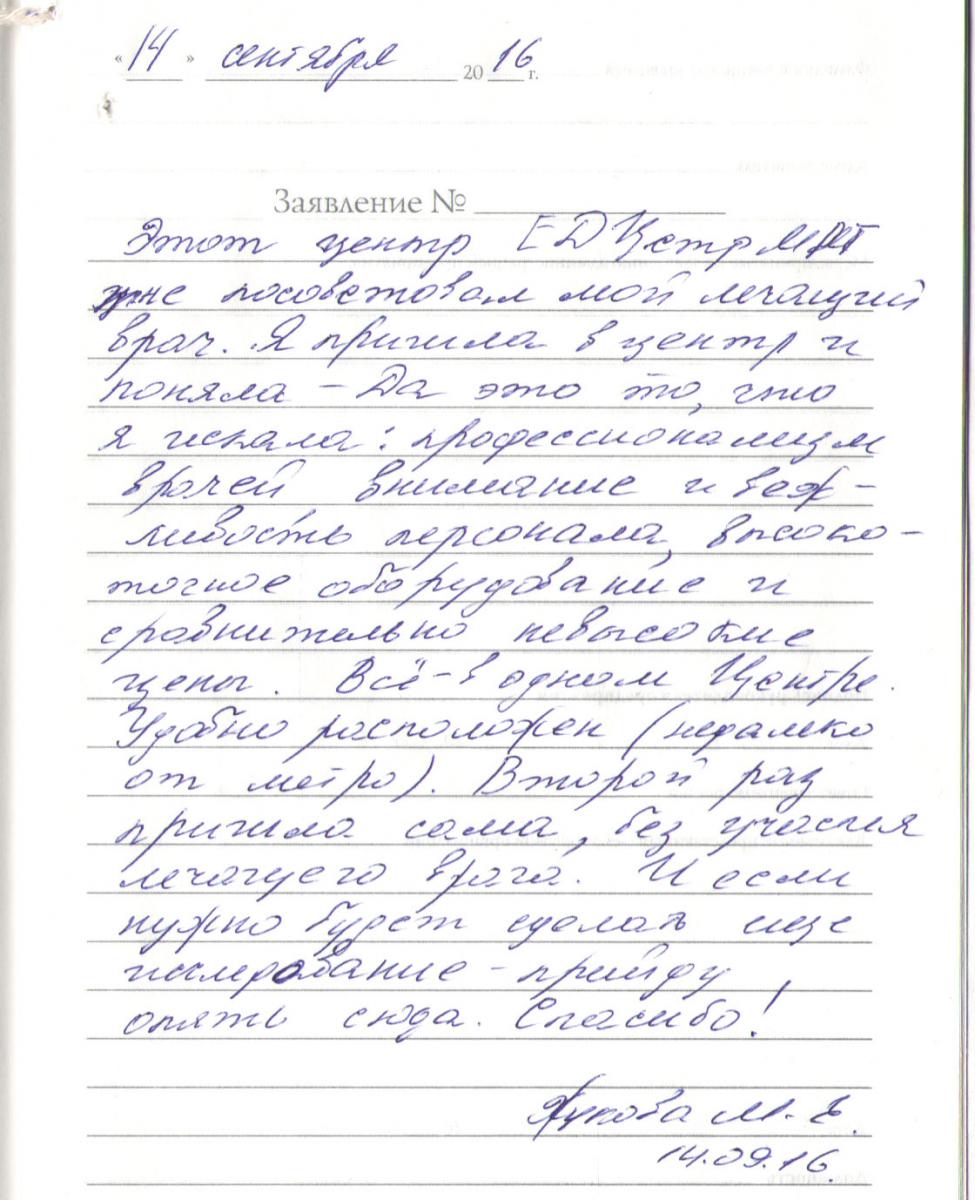 « 14 » сентября 2016 г.
Заявление №
Этот центр ЕДЦентр МРТ
мне посоветовал мой лечащий
врач. Я пришла в центр и
поняла – Да это то, что
я искала: профессионализм
врачей внимание и веж-
ливость персонала, высоко-
точное оборудование и
сравнительно невысокие
цены. Всё - в одном Центре.
Удобно расположен (недалеко
от метро). Второй раз
пришла сама, без участия
лечащего врача. И если
нужно будет сделать еще
исследование - прийду
опять сюда. Спасибо!
Жукова М.
14.09.16